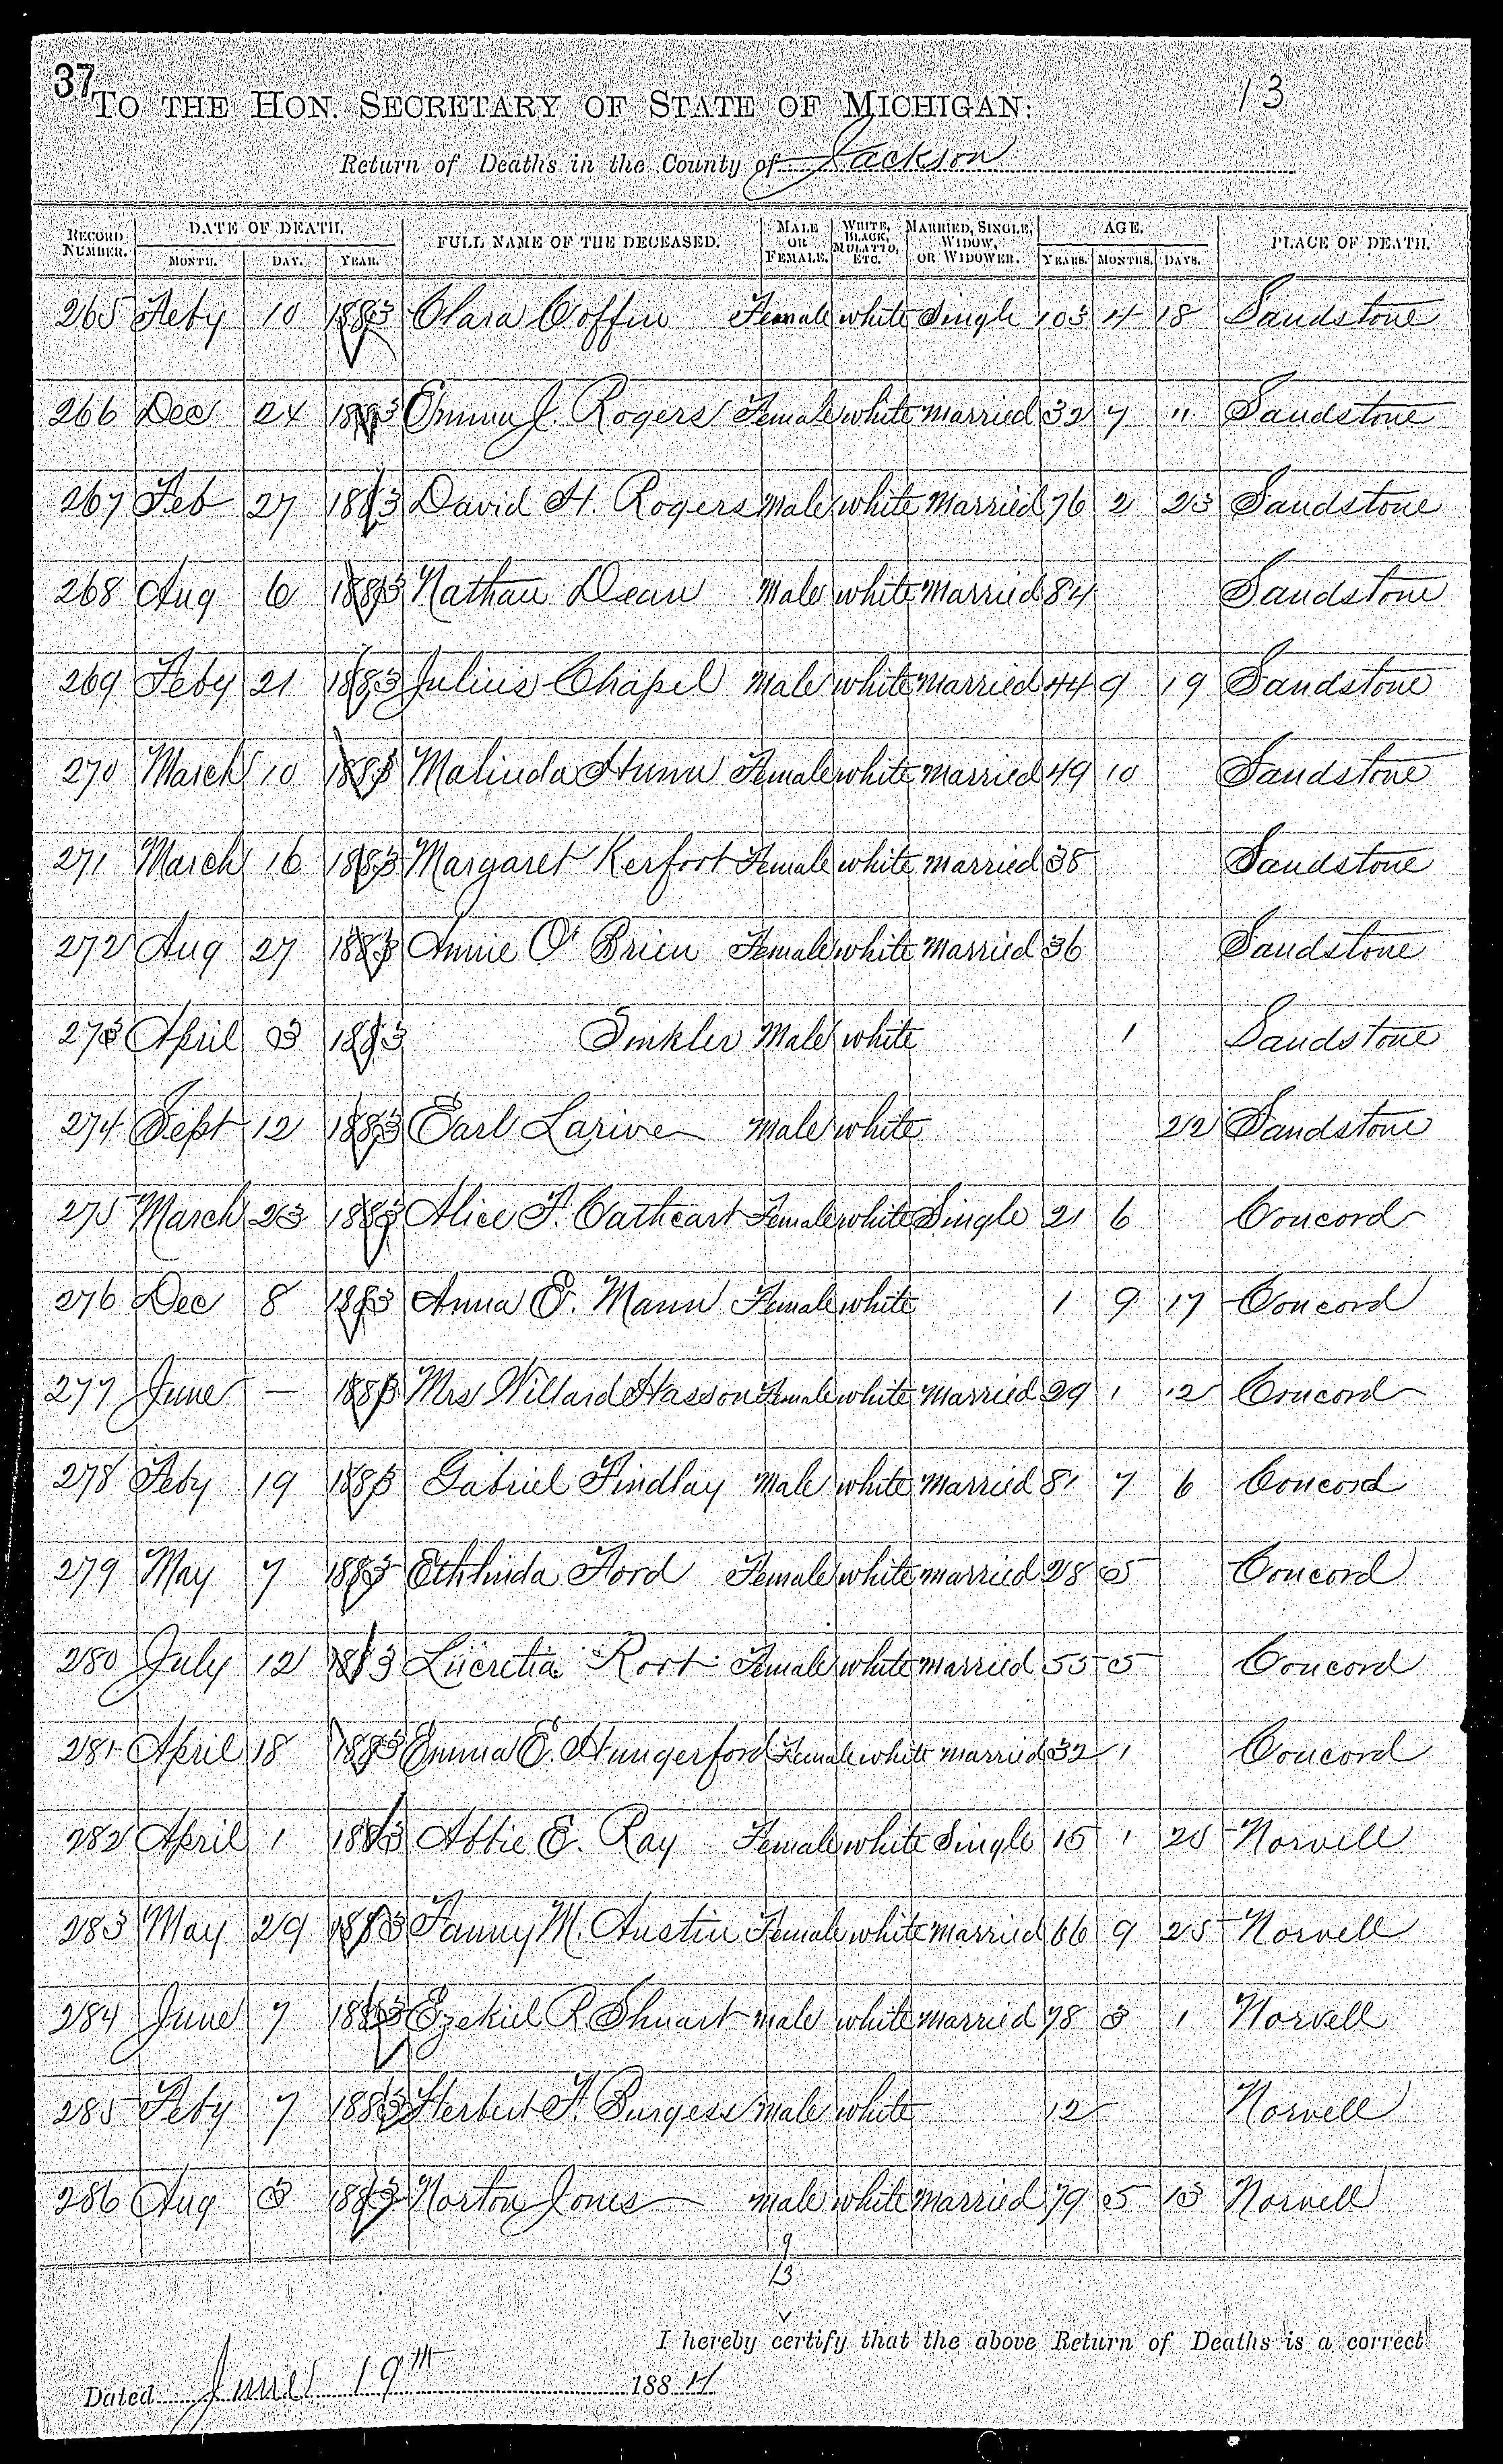 37
13
TO THE HON. SECRETARY OF STATE OF MICHIGAN:
Return of Deaths in the County of Jackson
RECORD NUMBER. DATE OF DEATH. MONTH. DAY. YEAR. FULL NAME OF THE DECEASED. MALE OR FEMALE. WHITE, BLACK, MULATTO, ETC. MARRIED, SINGLE, WIDOW, OR WIDOWER. AGE. YEARS. MONTHS. DAYS. PLACE OF DEATH.
265 Feby 10 1883 Clara Coffin Female white Single 103 4 18 Sandstone
266 Dec 24 1883 Emma J. Rogers Female white married 32 7 11 Sandstone
267 Feb 27 1883 David H. Rogers Male white Married 76 2 23 Sandstone
268 Aug 6 1883 Nathan Dean Male white Married 84 Sandstone
269 Feby 21 1883 Julius Chapel Male white married 44 9 19 Sandstone
270 March 10 1883 Malinda Hunn Female white married 49 10 Sandstone
271 March 16 1883 Margaret Kerfoot Female white married 38 Sandstone
272 Aug 27 1883 Annie O'Brien Female white Married 36 Sandstone
273 April 3 1883 Sinkler Male white 1 Sandstone
274 Sept 12 1883 Earl Larive male white 22 Sandstone
275 March 23 1883 Alice F. Cathcart Female white Single 21 6 Concord
276 Dec 8 1883 Anna E. Mann Female white 1 9 17 Concord
277 June — 1883 Mrs Willard Hasson Female white married 29 1 12 Concord
278 Feby 19 1883 Gabriel Findlay Male white married 81 7 6 Concord
279 May 7 1883 Ethlinda Ford Female white married 28 5 Concord
280 July 12 1883 Lucretia Root Female white married 55 5 Concord
281 April 18 1883 Emma E. Hungerford Female white married 32 1 Concord
282 April 1 1883 Abbie E. Ray Female white Single 15 1 25 Norvell
283 May 29 1883 Fanny M. Austin Female white married 66 9 25 Norvell
284 June 7 1883 Ezekiel R Shuart male white married 78 3 1 Norvell
285 Feby 7 1883 Herbert F. Burgess male white 12 Norvell
286 Aug 3 1883 Norton Jones male white married 79 5 13 Norvell
9
13
I hereby certify that the above Return of Deaths is a correct
Dated June 19th 1884